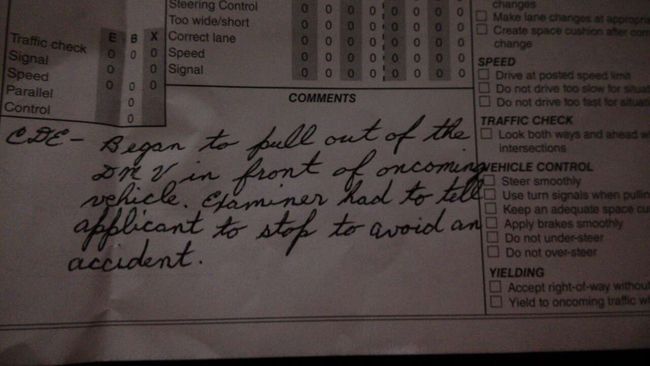 Steering Control 0 0 0 0 0 0 0 0
Too wide/short 0 0 0 0 0 0 0 0
Correct lane 0 0 0 0 0 0 0 0
Speed 0 0 0 0 0 0 0 0
Signal 0 0 0 0 0 0 0 0
E B X
Traffic check 0 0
Signal 0 0
Speed 0 0
Parallel 0
Control 0
COMMENTS
CDE - Began to pull out of the
DMV in front of oncoming
vehicle. Examiner had to tell
applicant to stop to avoid an
accident.
changes
Make lane changes at
Create space cushion after
change
SPEED
Drive at posted speed limit
Do not drive too slow for
Do not drive too fast for
TRAFFIC CHECK
Look both ways and ahead
intersections
VEHICLE CONTROL
Steer smoothly
Use turn signals when
Keep an adequate space
Apply brakes smoothly
Do not under-steer
Do not over-steer
YIELDING
Accept right-of-way
Yield to oncoming traffic